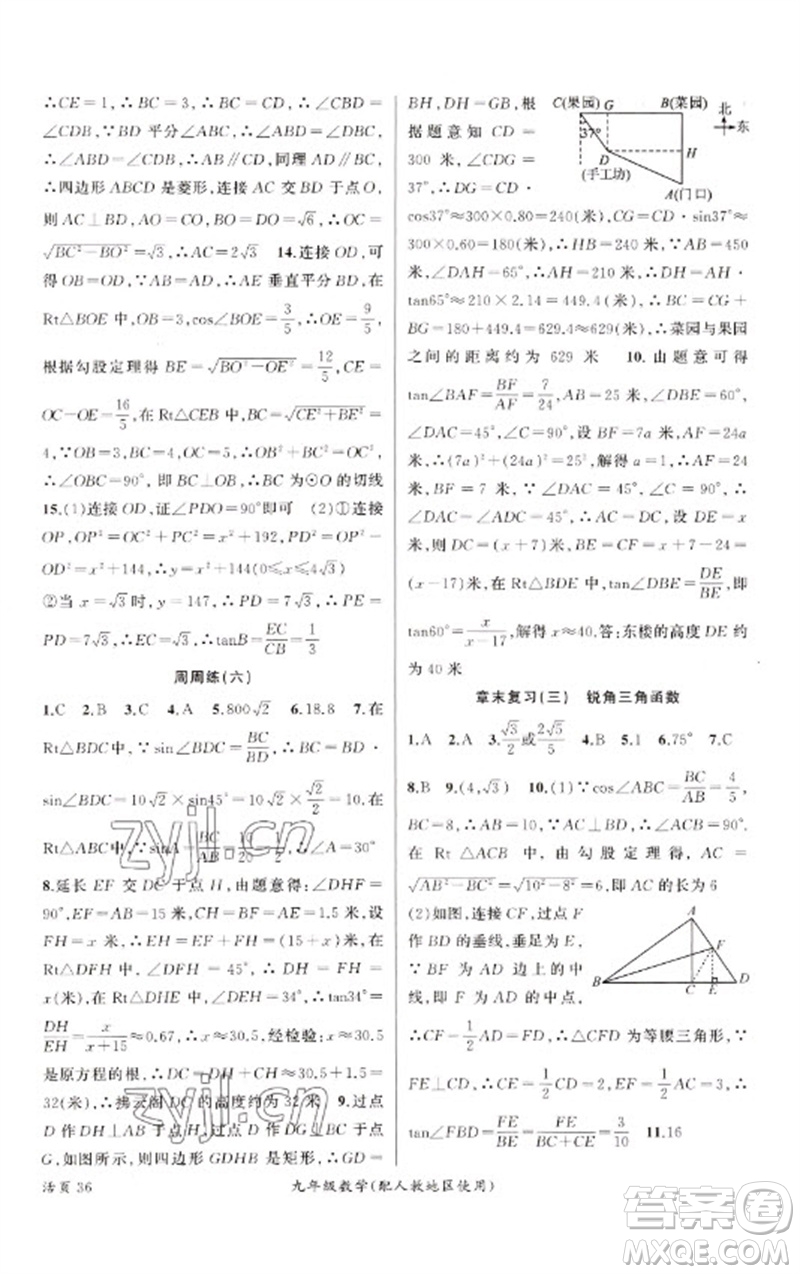 ∴CE=1,∴BC=3,∴BC=CD,∴∠CBD=
∠CDB,∵BD 平分∠ABC,∴∠ABD=∠DBC,
∴∠ABD=∠CDB,∴AB∥CD,同理 AD∥BC,
∴四边形 ABCD 是菱形,连接 AC 交 BD 于点 O,
则 AC⊥BD,AO=CO,BO=DO=√6,∴OC=
√(BC²−BO²)=√3,∴AC=2√3 14.连接 OD,可
得 AB=AD,OB=OD,∴AE 垂直平分 BD,在
Rt△BOE 中,OB=3,cos∠BOE=3/5,∴OE=9/5,
根据勾股定理得 BE=√(BO²−OE²)=12/5,CE=
OC−OE=16/5,在 Rt△CEB 中,BC=√(CE²+BE²)=
4,∵OB=3,BC=4,OC=5,∴OB²+BC²=OC²,
∴∠OBC=90°,即 BC⊥OB,则 BC 为⊙O 的切线
15.(1)连接 OD,证∠PDO=90°即可 (2)①连接
OP,OP²=OC²+PC²=x²+192,PD²=OP²−
OD²=x²+144,∴y=x²+144(0≤x≤4√3)
②当 x=√3时,y=147,∴PD=7√3,∴PE=
PD=7√3,∴EC=PE−PC=,∴tanB=EC/CB=1/3
周周练(六)
1.C 2.B 3.C 4.A 5.800√2 6.18.8 7.在
Rt△BDC 中,∵sin∠BDC=BC/BD,∴BC=BD·
sin∠BDC=10√2×sin45°=10√2×√2/2=10.在
Rt△ABC 中,∵sinA=BC/AB=10/20=1/2,∴∠A=30°
8.延长 EF 交 DC 于点 H,由题意得:∠DHF=
90°,EF=AB=15 米,CH=BF=AE=1.5 米,设
FH=x 米,∴EH=EF+FH=(15+x)米,在
Rt△DFH 中,∠DFH=45°,∴DH=FH·tan45°=
x(米),在 Rt△DHE 中,∠DEH=34°,∴tan34°=
DH/EH=x/(x+15)≈0.67,∴x≈30.5,经检验:x≈30.5
是原方程的根,∴DC=DH+CH≈30.5+1.5=
32(米),∴拂云阁 DC 的高度约为 32 米 9.过点
D 作 DH⊥AB 于点 H,过点 D 作 DG⊥BC 于点 G,
如图所示,则四边形 GDHB 是矩形,∴GD=
活页 36
BH,DH=GB,根
据题意知 CD=
300 米,∠CDG=
37°,∴DG=CD·
C(果园) G B(菜园) 北
东
37°
D
(手工坊)
H
A(门口)
cos37°≈300×0.80=240(米),CG=CD·sin37°≈
300×0.60=180(米),∴HB=240 米,∵AB=450
米,∠DAH=65°,∴AH=210 米,∴DH=AH·
tan65°≈210×2.14=449.4(米),∴BC=CG+
BG=180+449.4=629.4≈629(米),∴菜园与果园
之间的距离约为 629 米 10.由题意可得
tan∠BAF=BF/AF=7/24,∠DAC=45°,∠DBE=60°,
AB=25 米,设 BF=7a 米,AF=24a
米,∴(7a)²+(24a)²=25²,解得 a=1,∴AF=24
米,BF=7 米,∵∠DAC=45°,∠C=90°,
∴∠DAC=∠ADC=45°,∴AC=DC,设 DE=x
米,则 DC=(x+7)米,BE=CF=x+7−24=
(x−17)米,在 Rt△BDE 中,tan∠DBE=DE/BE,即
tan60°=x/(x−17),解得 x≈40.答:东楼的高度 DE 约
为 40 米
章末复习(三) 锐角三角函数
1.A 2.A 3.√3/2或2√5/5 4.B 5.1 6.75° 7.C
8.B 9.(4,√3) 10.(1)∵cos∠ABC=BC/AB=4/5,
BC=8,∴AB=10,∵AC⊥BD,∴∠ACB=90°.
在 Rt△ACB 中,由勾股定理得,AC=
√(AB²−BC²)=√(10²−8²)=6,即 AC 的长为 6
(2)如图,连接 CF,过点 F
作 BD 的垂线,垂足为 E,
∵BF 为 AD 边上的中线,
即 F 为 AD 的中点,
A
F
B C E D
∴CF=1/2AD=FD,∴△CFD 为等腰三角形,∵
FE⊥CD,∴CE=1/2CD=2,FE=1/2AC=3,∴
tan∠FBD=FE/BE=FE/(BC+CE)=3/10 11.16
九年级数学(配人教地区使用)
zyjl.cn
zyjl.cn
答案圈
MXQE.COM